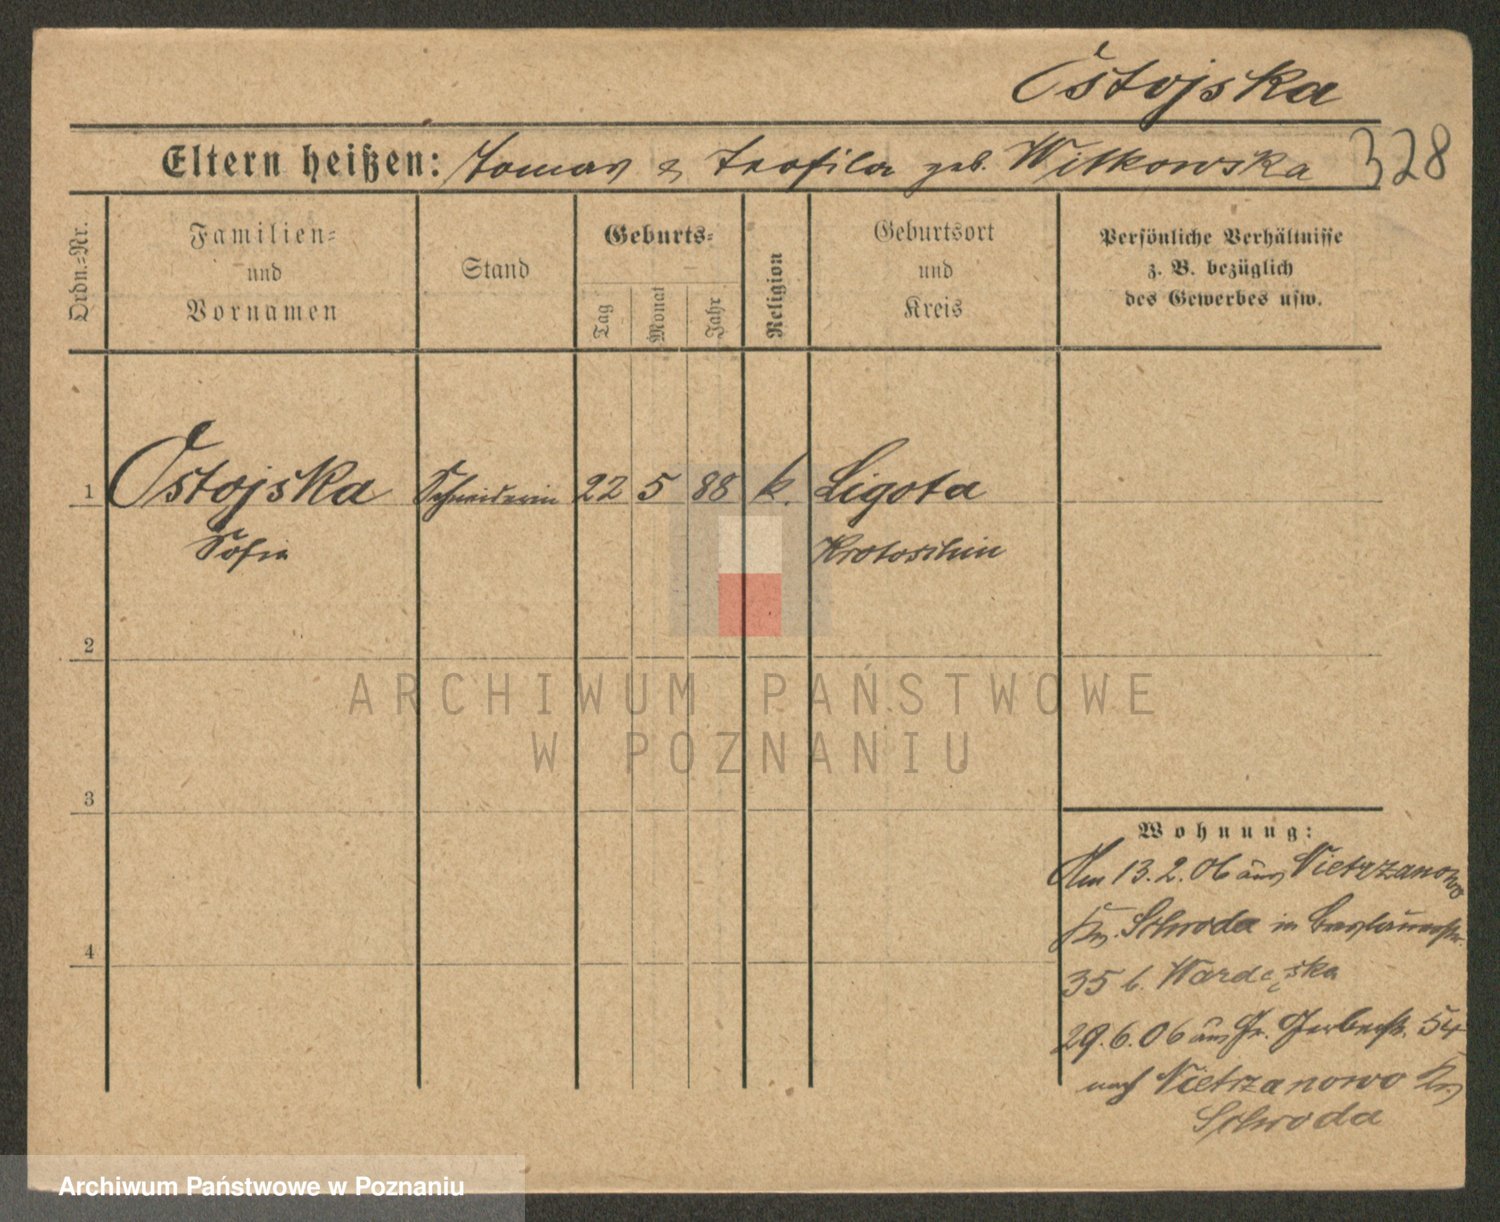 Ostojska
Eltern heißen: Tomas & Teofila geb. Witkowska 328
Ordn.-Nr.
Familien-
und
Vornamen
Stand
Geburts-
Tag
Monat
Jahr
Religion
Geburtsort
und
Kreis
Persönliche Verhältnisse
z. B. bezüglich
des Gewerbes usw.
1 Ostojska Schneiderin 22 5 88 k. Ligota
Sofia Krotoschin
2
ARCHIWUM PAŃSTWOWE
W POZNANIU
3
Wohnung:
Am 13.2.06 aus Nietrzanowo
Kr. Schroda in
35 b.
4
29.6.06 aus Gr. Gerberstr. 54
nach Nietrzanowo Kr.
Schroda
Archiwum Państwowe w Poznaniu